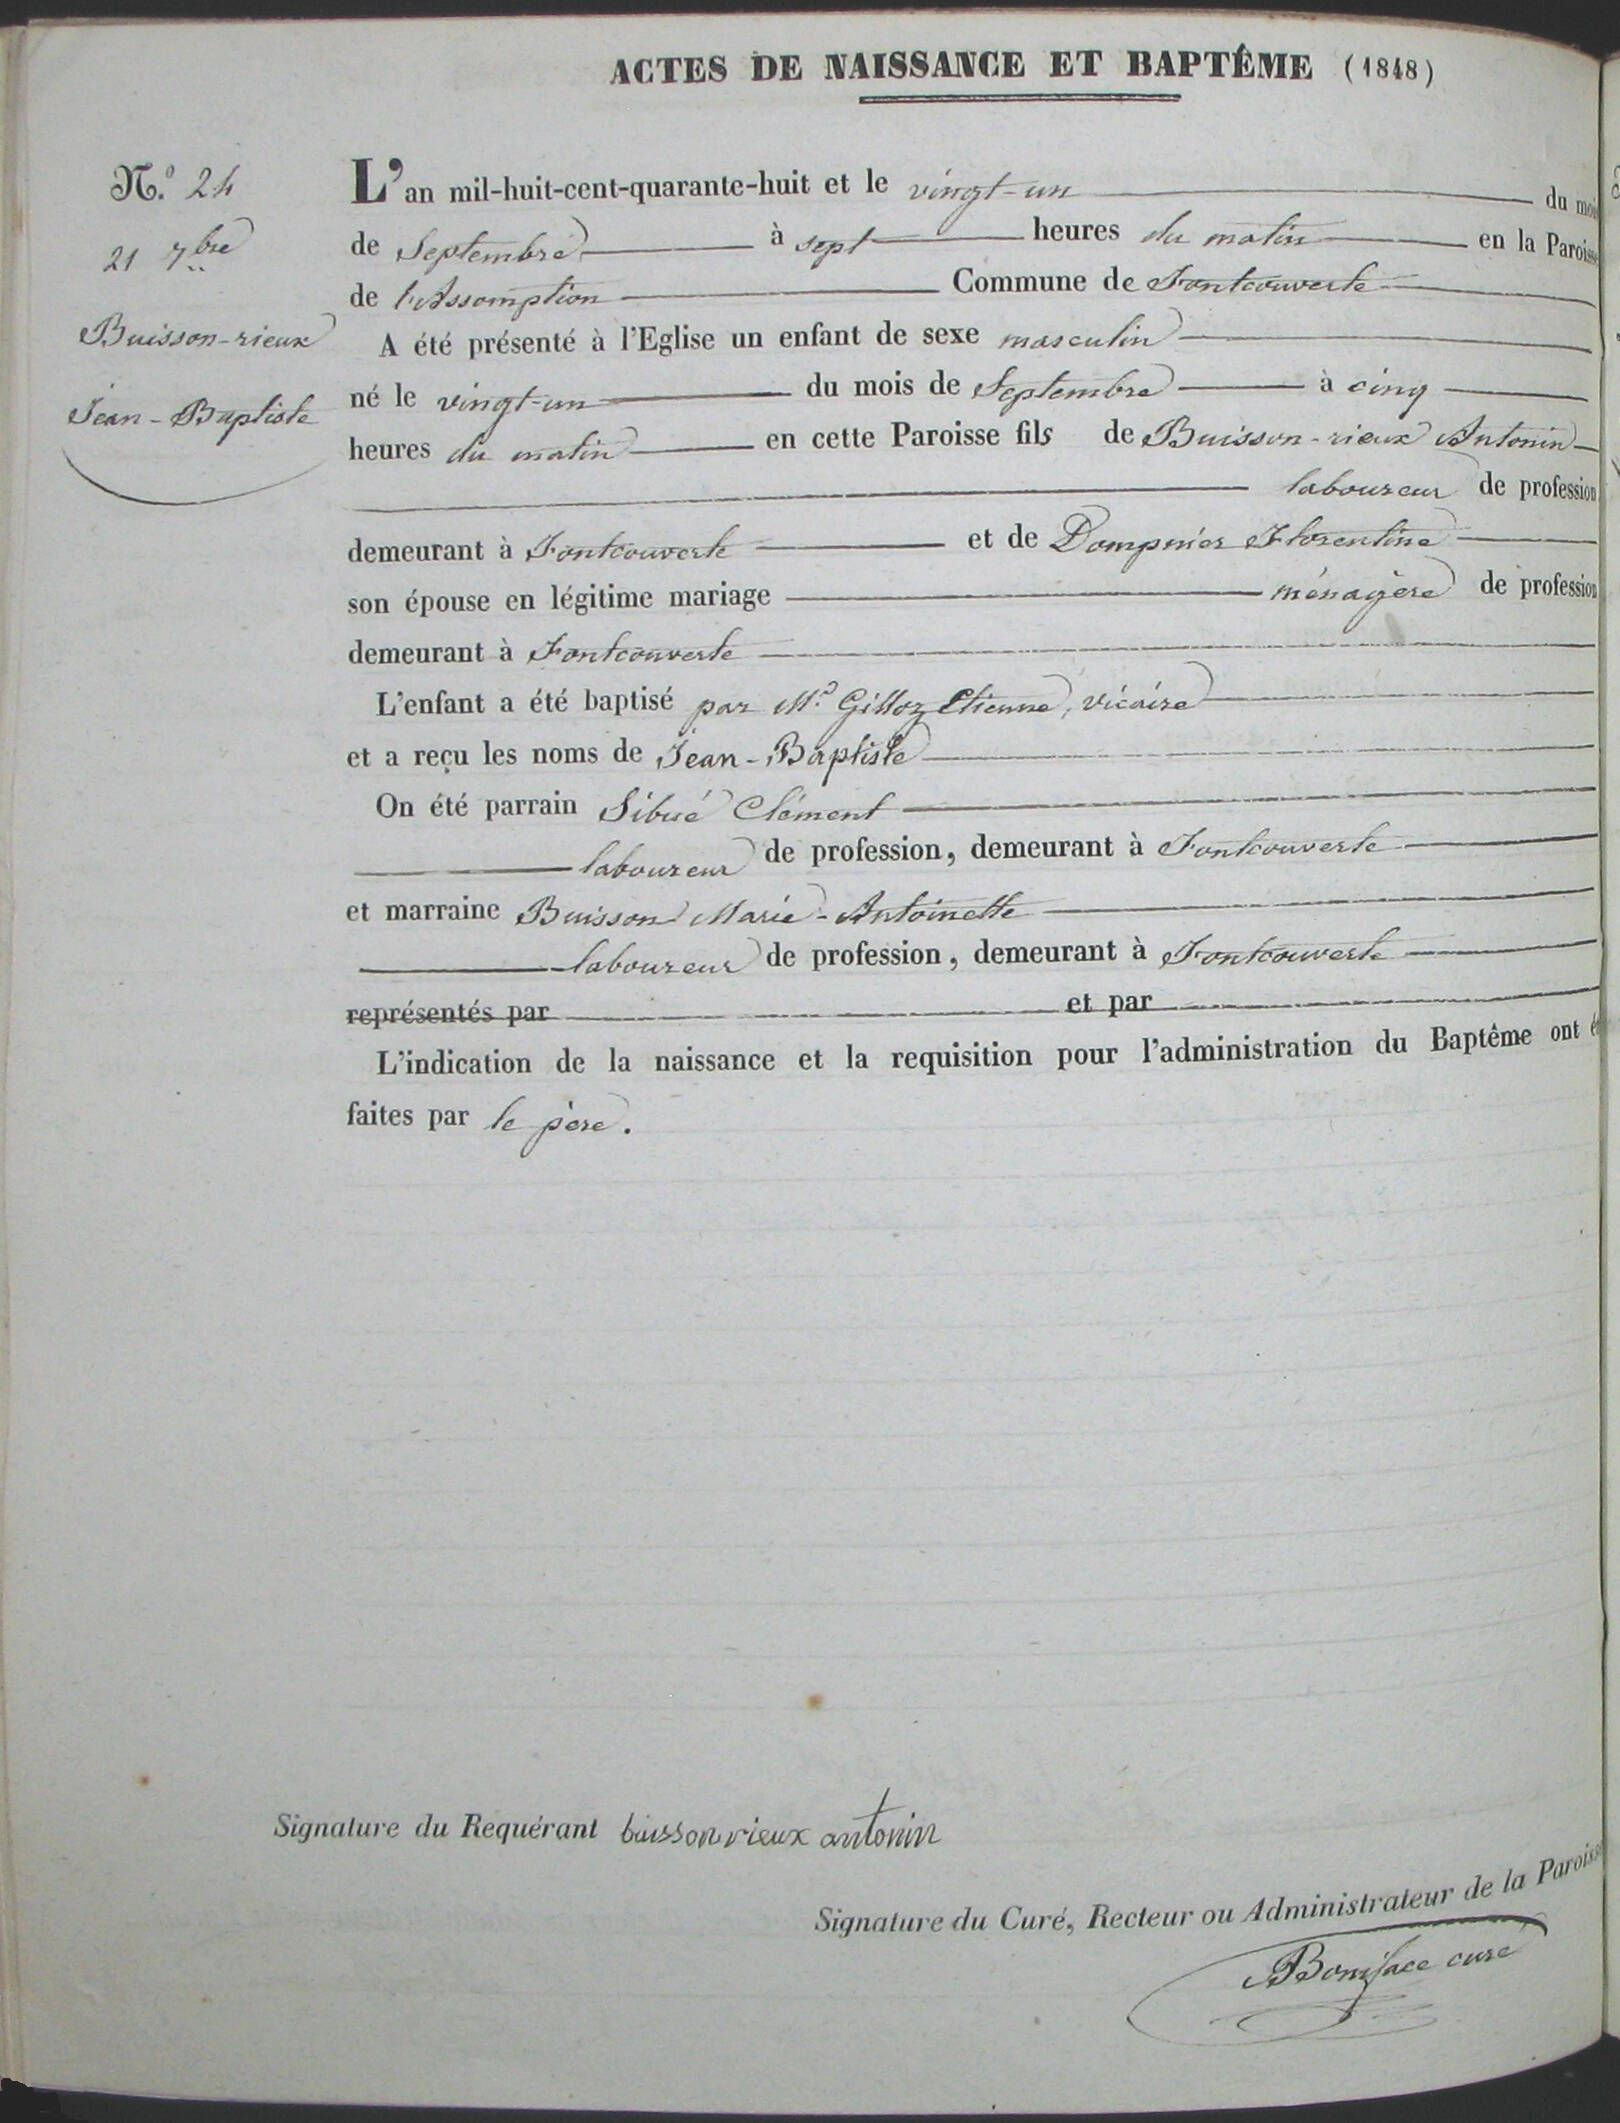 ACTES DE NAISSANCE ET BAPTÊME (1848)
N.º 24
21 7bre
Buisson-rieux
Jean-Baptiste
L'an mil-huit-cent-quarante-huit et le vingt-un du mois
de Septembre à sept heures du matin en la Paroisse
de l'Assomption Commune de Fontcouverte
A été présenté à l'Eglise un enfant de sexe masculin
né le vingt-un du mois de Septembre à cinq
heures du matin en cette Paroisse fils de Buisson-rieux Antonin
laboureur de profession
demeurant à Fontcouverte et de Dompnier Florentine
son épouse en légitime mariage ménagère de profession
demeurant à Fontcouverte
L'enfant a été baptisé par Mr. Gilloz Etienne, vicaire
et a reçu les noms de Jean-Baptiste
On été parrain Sibué Clément
laboureur de profession, demeurant à Fontcouverte
et marraine Buisson Marie-Antoinette
laboureur de profession, demeurant à Fontcouverte
représentés par et par
L'indication de la naissance et la requisition pour l'administration du Baptême ont é
faites par le père.
Signature du Requérant buisson rieux antonin
Signature du Curé, Recteur ou Administrateur de la Paroisse
Boniface curé